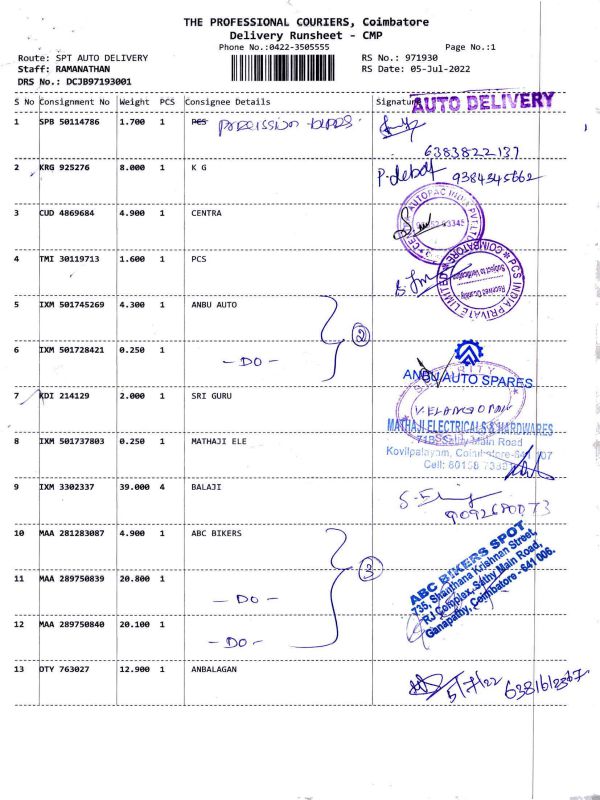 THE PROFESSIONAL COURIERS, Coimbatore
Delivery Runsheet - CMP
Phone No.:0422-3505555 Page No.:1
Route: SPT AUTO DELIVERY RS No.: 971930
Staff: RAMANATHAN RS Date: 05-Jul-2022
DRS No.: DCJB97193001
S No Consignment No Weight PCS Consignee Details Signature AUTO DELIVERY
1 SPB 50114786 1.700 1 PCS
6383822137
2 KRG 925276 8.000 1 K G 9384345662
3 CUD 4869684 4.900 1 CENTRA
4 TMI 30119713 1.600 1 PCS
PCS INDIA PRIVATE LIMITED COIMBATORE
Received Quantity
Subject to Verification
5 IXM 501745269 4.300 1 ANBU AUTO
2
6 IXM 501728421 0.250 1 - DO -
ANBU AUTO SPARES
7 KDI 214129 2.000 1 SRI GURU
MATHAJI ELECTRICALS & HARDWARES
8 IXM 501737803 0.250 1 MATHAJI ELE
Main Road
Kovilpalayam, Coimbatore-641 107
9 IXM 3302337 39.000 4 BALAJI
10 MAA 281283087 4.900 1 ABC BIKERS
ABC BIKERS SPOT
735, Shanthana Krishnan Street,
RJ Complex, Sathy Main Road,
Ganapathy, Coimbatore - 641 006.
3
11 MAA 289750839 20.800 1 - DO -
12 MAA 289750840 20.100 1 - DO -
13 OTY 763027 12.900 1 ANBALAGAN
5/7/22